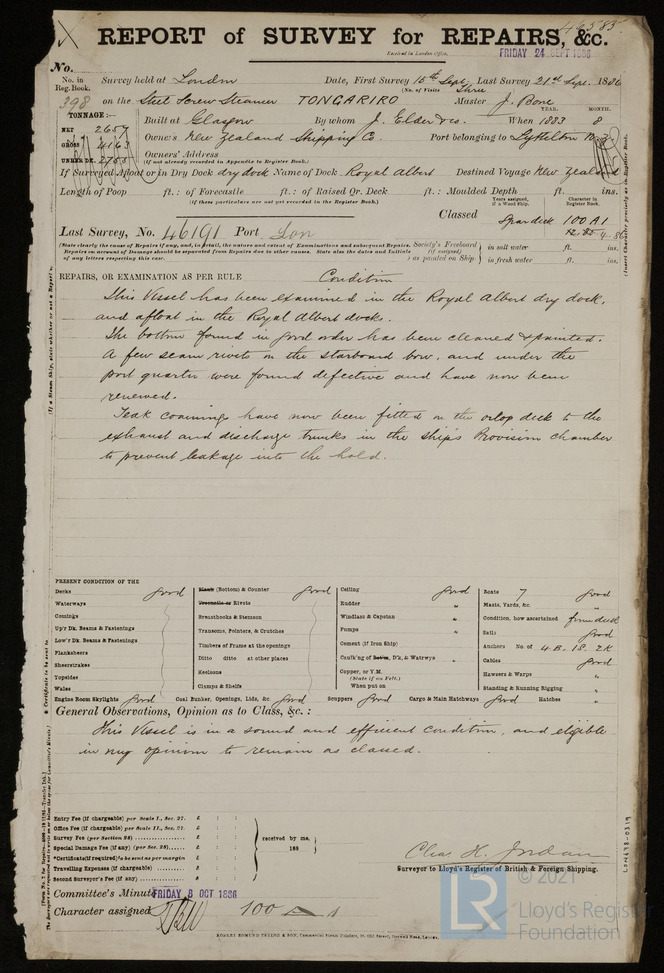 46583
REPORT of SURVEY for REPAIRS, &c.
Received in London Office, FRIDAY 24 SEPT 1886
No.
No. in Reg. Book. Survey held at London Date, First Survey 15th Sept, Last Survey 21st Sept. 1886
(No. of Visits Three
398 on the Steel Screw Steamer TONGARIRO Master J. Bone
TONNAGE:— Built at Glasgow By whom J. Elder & Co. When 1883 8
YEAR. MONTH.
NET 2657
GROSS 4163
UNDER DK. 2758
Owners New Zealand Shipping Co. Port belonging to Lyttelton N.Z.
Owners' Address
(If not already recorded in Appendix to Register Book.)
If Surveyed Afloat or in Dry Dock dry dock Name of Dock Royal Albert Destined Voyage New Zealand
Length of Poop ft.: of Forecastle ft.: of Raised Qr. Deck ft.: Moulded Depth ft. ins.
(If these particulars are not yet recorded in the Register Book.)
Years assigned, if a Wood Ship. Character in Register Book.
Classed Spar deck 100 A1
Last Survey, No. 46191 Port Lon
12.85
(State clearly the cause of Repairs if any, and, in detail, the nature and extent of Examinations and subsequent Repairs.
Repairs on account of Damage should be separated from Repairs due to other causes. State also the dates and initials
of any letters respecting this case.
Society's Freeboard (if assigned) as painted on Ship
in salt water ft. ins.
in fresh water ft. ins.
REPAIRS, OR EXAMINATION AS PER RULE Condition
This Vessel has been examined in the Royal Albert dry dock,
and afloat in the Royal Albert docks.
The bottom found in good order has been cleaned & painted.
A few seam rivets on the starboard bow, and under the
port quarter were found defective and have now been
renewed.
Teak coamings have now been fitted on the orlop deck to the
exhaust and discharge trunks in the ship's Provision chamber
to prevent leakage into the hold.
PRESENT CONDITION OF THE
Decks good
Waterways
Comings
Up'r Dk. Beams & Fastenings
Low'r Dk. Beams & Fastenings
Planksheers
Sheerstrakes
Topsides
Wales
Engine Room Skylights good
Plank (Bottom) & Counter good
Treenails or Rivets
Breasthooks & Stemson
Transoms, Pointers, & Crutches
Timbers of Frame at the openings
Ditto ditto at other places
Keelsons
Clamps & Shelfs
Coal Bunker, Openings, Lids, &c. good
Ceiling good
Rudder "
Windlass & Capstan "
Pumps "
Cement (if Iron Ship)
Caulk'ng of Bottom, D'k, & Waterwys "
Copper, or Y.M.
(State if on Felt.)
When put on
Scuppers good Cargo & Main Hatchways good
Boats 7 good
Masts, Yards, &c. "
Condition, how ascertained from deck
Sails good
Anchors No. of 4B. 1S. 2K
Cables good
Hawsers & Warps "
Standing & Running Rigging "
Hatches "
General Observations, Opinion as to Class, &c.:
This Vessel is in a sound and efficient condition, and eligible
in my opinion to remain as classed.
Entry Fee (if chargeable) per Scale I., Sec. 27. £ : :
Office Fee (if chargeable) per Scale II., Sec. 27. £ : :
Survey Fee (per Section 28) £ : :
Special Damage Fee (if any) (per Sec. 28) £ : :
*Certificate (if required) to be sent as per margin £ : :
Travelling Expenses (if chargeable) £ : :
Second Surveyor's Fee (if any) £ : :
received by me,
188
Chas H. Jordan
Surveyor to Lloyd's Register of British & Foreign Shipping.
Committee's Minute FRIDAY 8 OCT 1886
Character assigned 100 A 1
© 2021
LR
Lloyd's Register
Foundation